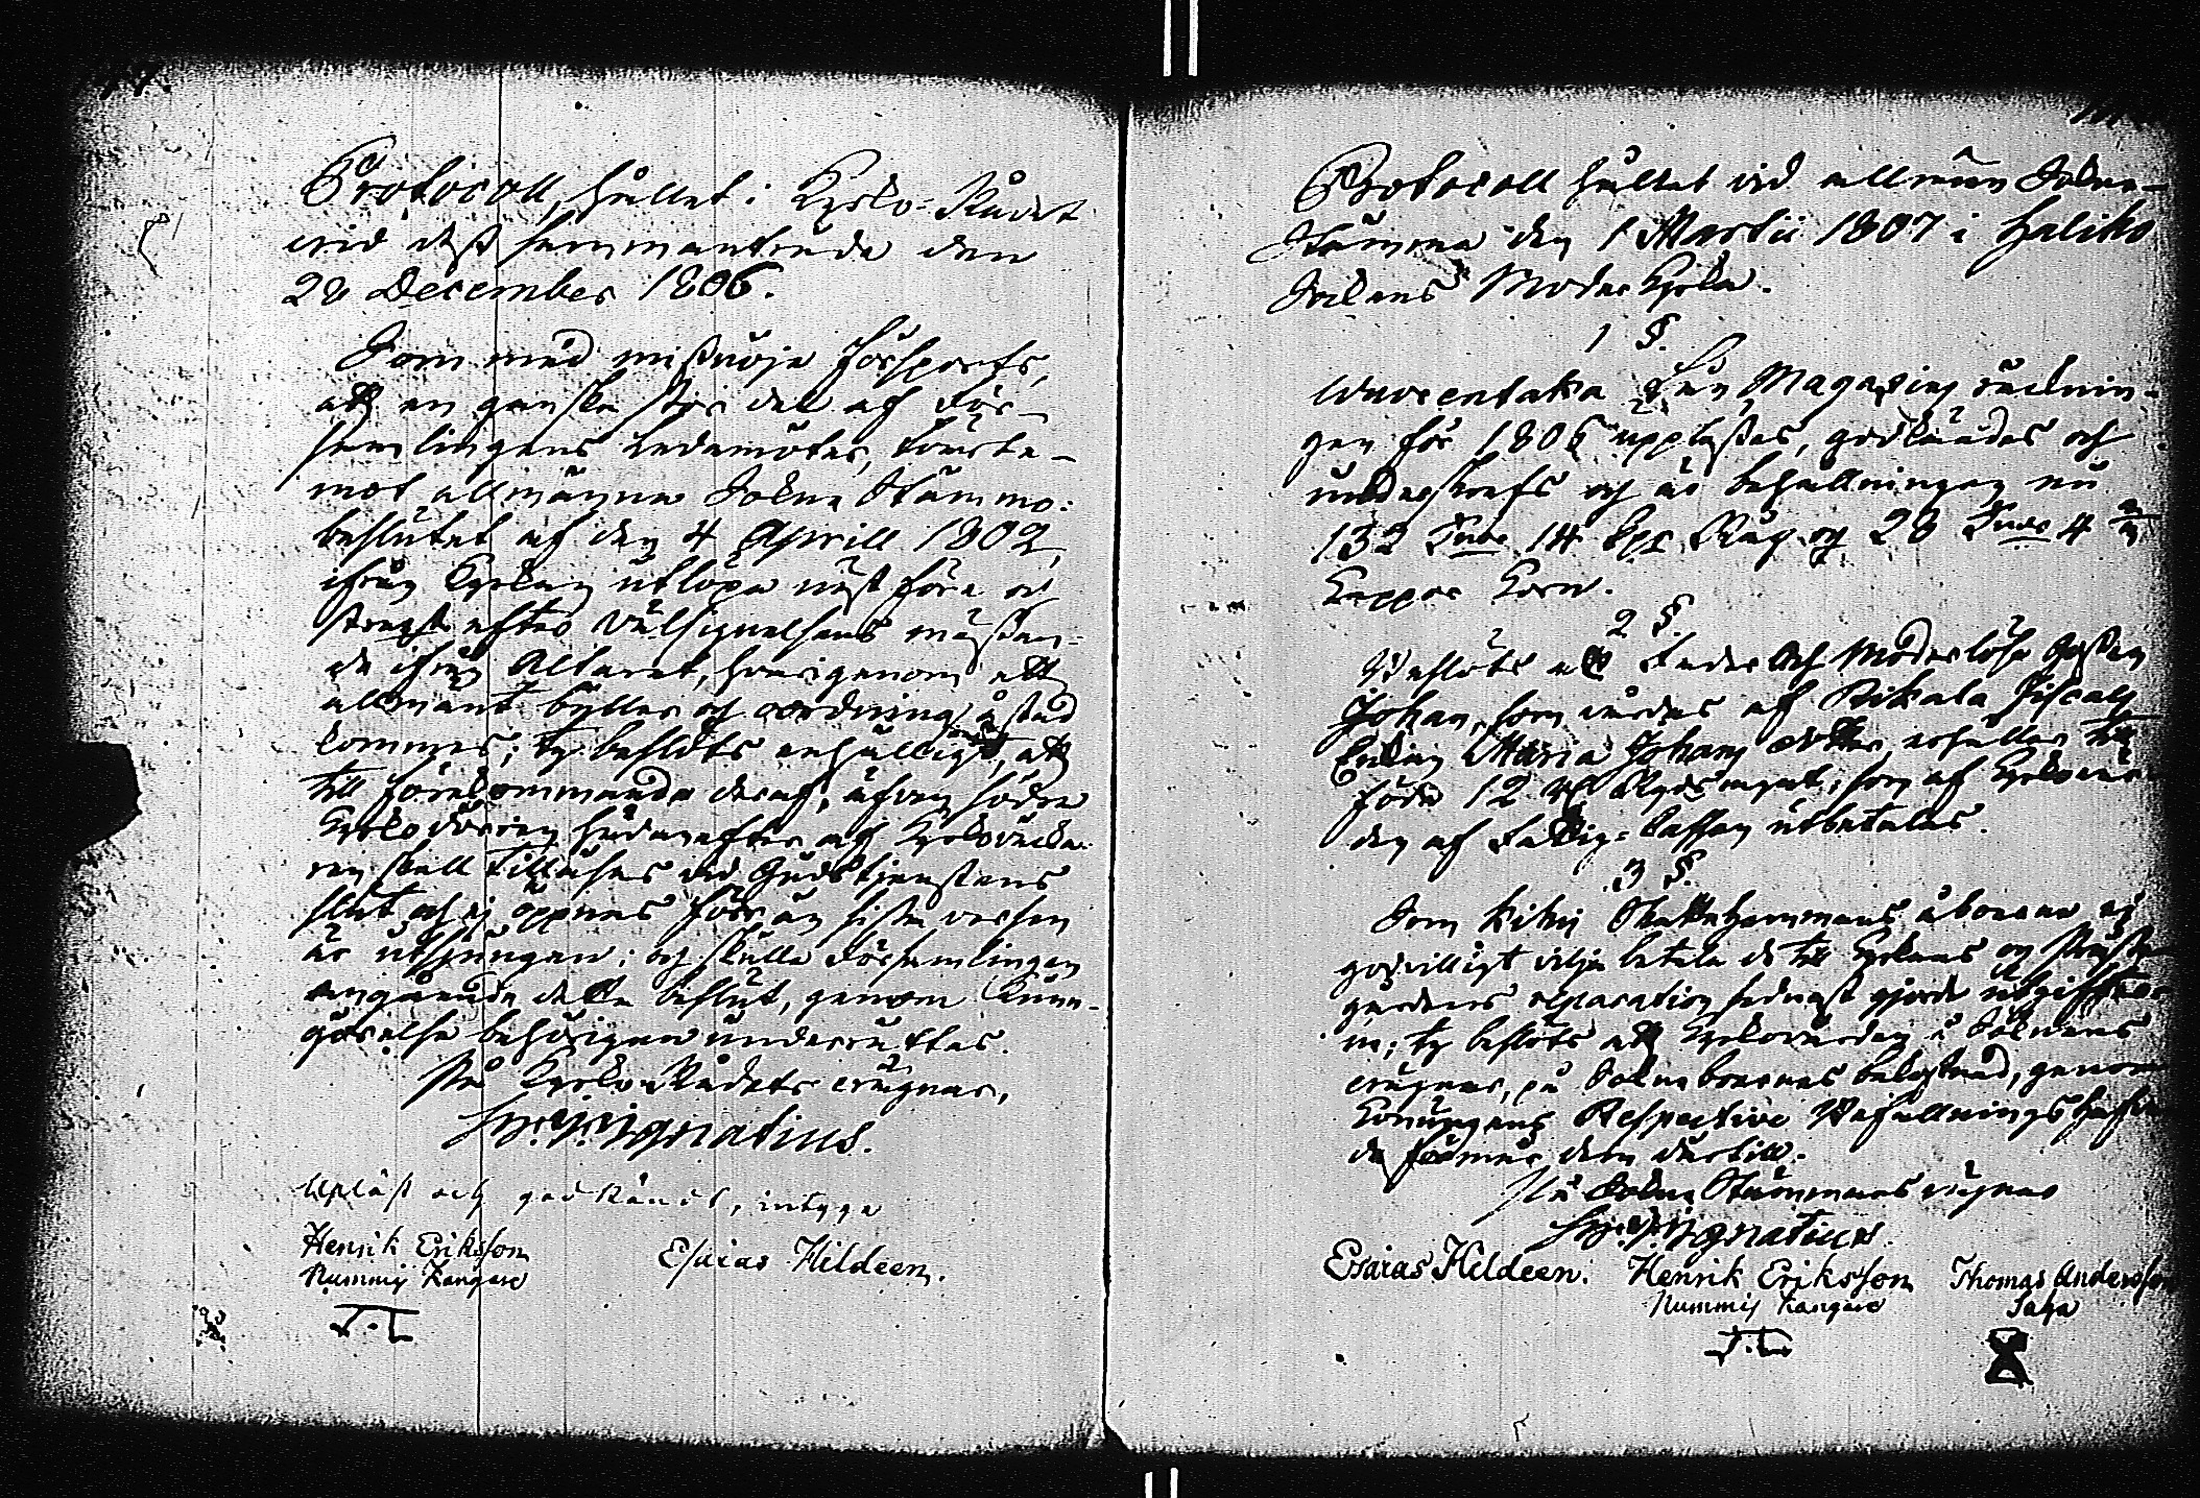 Protocoll, hållet i Kyrko-Rådet
vid dess sammanträde den
28 December 1806.
Som med missnöje försports,
att en ganska stor del af För-
samlingens Ledamöter, tvärte-
mot allmänna Sokne Stämmo-
beslutet af den 4 Aprill 1802,
ifrån Kyrkan utlöpa näst före och
straxt efter Välsignelsens mässan-
de ifrån Altaret, hvarigenom ett
allmänt buller och oordning åstad
kommes; ty beslöts enhälligt, att
till förekommande deraf, äfven södra
Kyrko dörren hädanefter af Kyrkovakta-
ren skall tillåses vid Gudstjenstens
slut och ej öppnas förr än sista versen
är utsjungen; och skulle Församlingen
angående detta beslut, genom Kun-
görelse behörigen underrättas.
På Kyrko-Rådets vägnar,
Ignatius.
Upläst och godkändt, intyga
Henrik Eriksson Esaias Hildeen.
Nummis Kangare
Protocoll hållet vid allmän Sokne-
Stämma den 1 Martii 1807 i Haliko
Sockens Moder Kyrka.
1 §.
Wuorentaka Lån Magazins räknin-
gen för 1806 upplästes, godkändes och
underskrefs och är behållningen nu
132 Tunr 14 kpr Råg och 28 Tunr 4
Kappar Korn.
2 §.
Beslöts att Fader och Moderlösa Gossen
Johan, som vårdas af Rikala
Enkan Maria Johans dotter erhåller till
föda 12 Rd Rgds mynt, som af Kyrkovär-
den af Fattig-Cassan utbetalas.
3 §.
Som Kihis Skattehemmans åboerne ej
godvilligt vilja betala de till Kyrkans och Präste
gårdens reparation sednast gjorde utgifter
na; ty beslöts att Kyrkovärden å Soknens
vägnar, på Soknboernas bekostnad, genom
Konungens Respective Befallningshafvan
de förmår dem dertill.
På Sokne Stämmans vägnar
Ignatius.
Esaias Hildeen. Henrik Eriksson Thomas Andersson
Nummis Kangare Saha